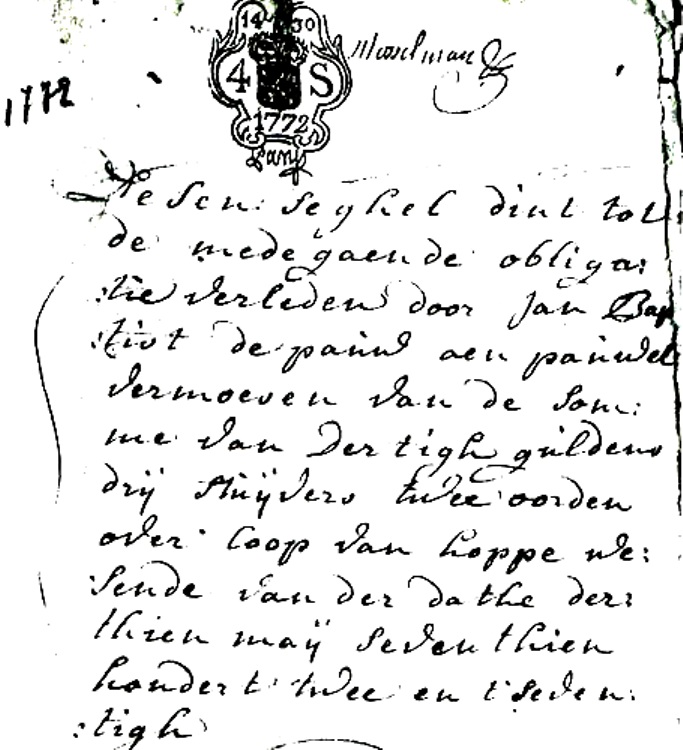 14 30
Mosselman
4 S
1772
1772
desen seghel dint tot
de medegaende obliga:
:tie verleden door Jan Bap
:tist de pauw aen pauwel
vermoesen van de som:
me van dertigh guldens
drij stuijvers twee oorden
over loop van hoppe we:
:sende van der dathe der:
thien maij seventhien
hondert twee en tseven:
:tigh